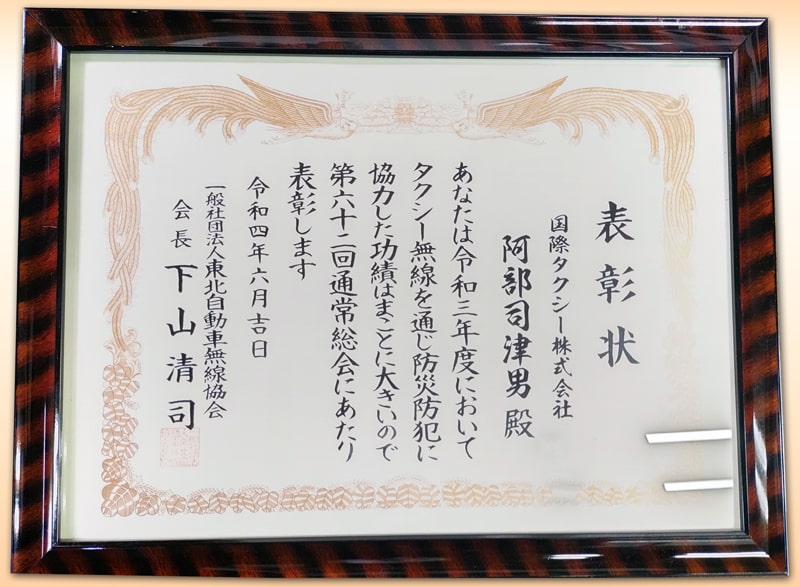 表彰状
国際タクシー株式会社
阿部司津男殿
あなたは令和三年度において
タクシー無線を通じ防災防犯に
協力した功績はまことに大きいので
第六十二回通常総会にあたり
表彰します
令和四年六月吉日
一般社団法人東北自動車無線協会
会長下山清司